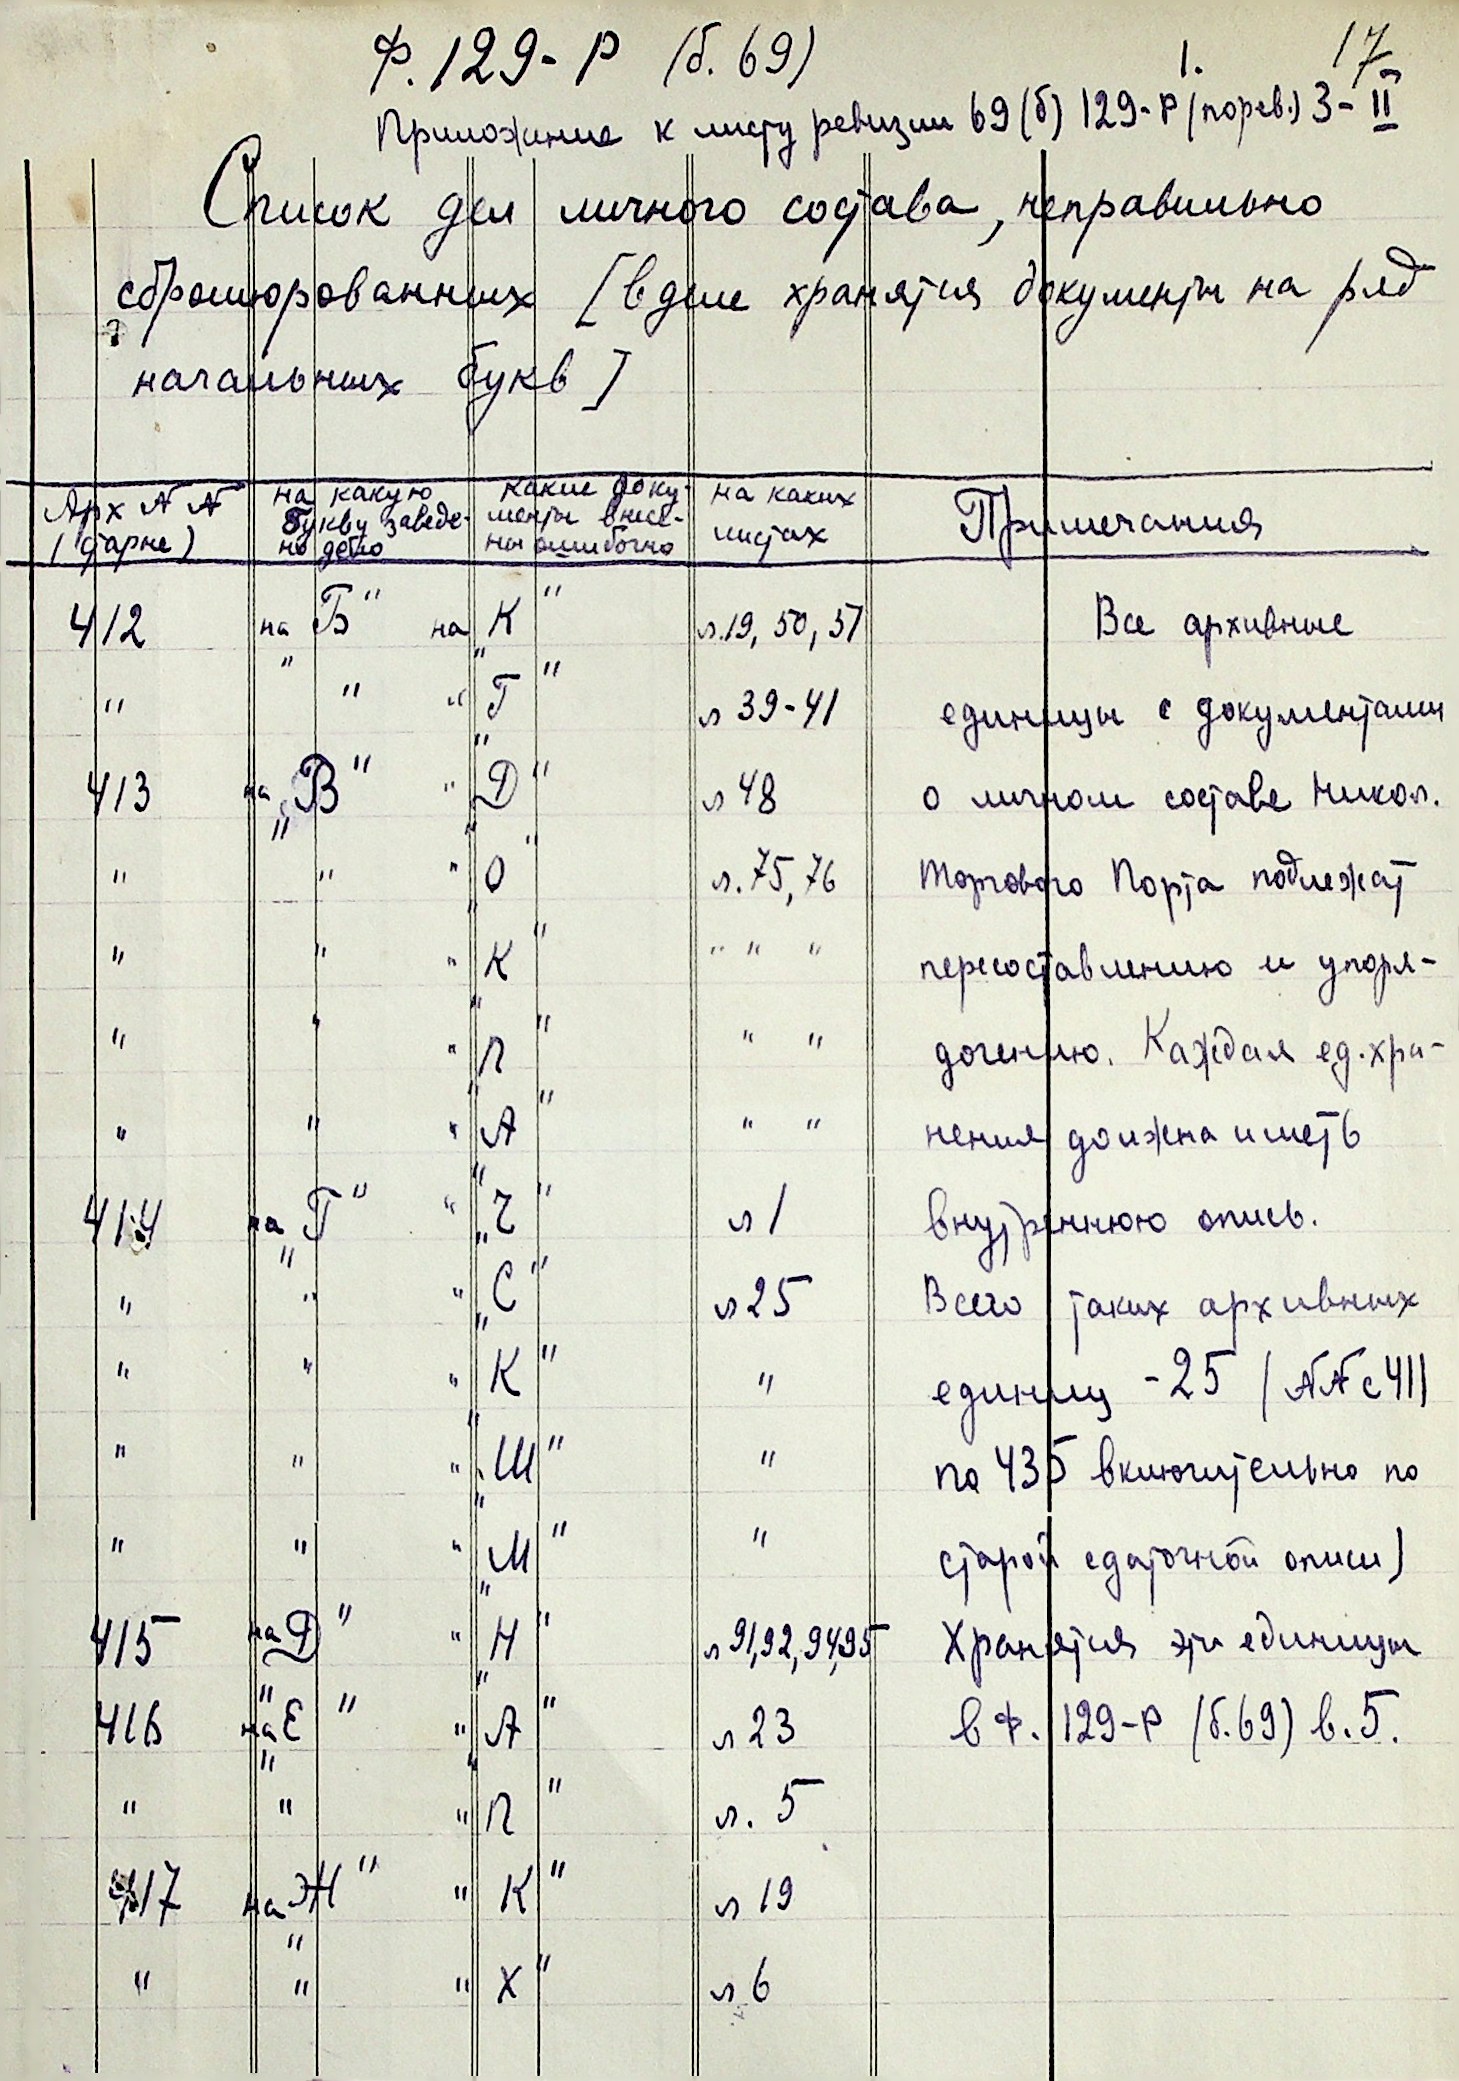 Ф. 129-Р (б. 69)
1. 17
Приложение к листу ревизии 69 (б) 129-Р (порев.) 3-II
Список дел личного состава, неправильно
сброшюрованных [в деле хранятся документы на ряд
начальных букв]
Арх №№ (старые) | на какую букву заведено дело | какие документы внесены ошибочно | на каких листах | Примечания
412 на „Б" на „К" л. 19, 50, 51 Все архивные
" " " „Г" л 39-41 единицы с документами
413 на „В" " „Д" л 48 о личном составе Никол.
" " " „О" л. 75, 76 Торгового Порта подлежат
" " " „К" " " " пересоставлению и упоря-
" " " „П" " " дочению. Каждая ед. хра-
" " " „А" " " нения должна иметь
414 на „Г" " „Ч" л 1 внутреннюю опись.
" " " „С" л 25 Всего таких архивных
" " " „К" " единиц - 25 (№№ с 411
" " " „Ш" " по 435 включительно по
" " " „М" " старой сдаточной описи)
415 на „Д" " „Н" л 91, 92, 94, 95 Хранятся эти единицы
416 на „Е" " „А" л 23 в Ф. 129-Р (б. 69) в. 5.
" " " „П" л. 5
417 на „Ж" " „К" л 19
" " " „Х" л 6